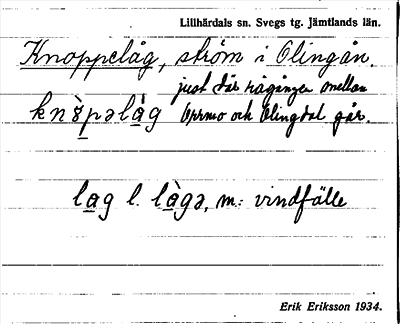 Lillhärdals sn. Svegs tg. Jämtlands län.
Knoppelåg, ström i Olingån,
just där rågången mellan
knòpəlàg Orrmo och Olingdal går.
lag l. làgə, m: vindfälle
Erik Eriksson 1934.